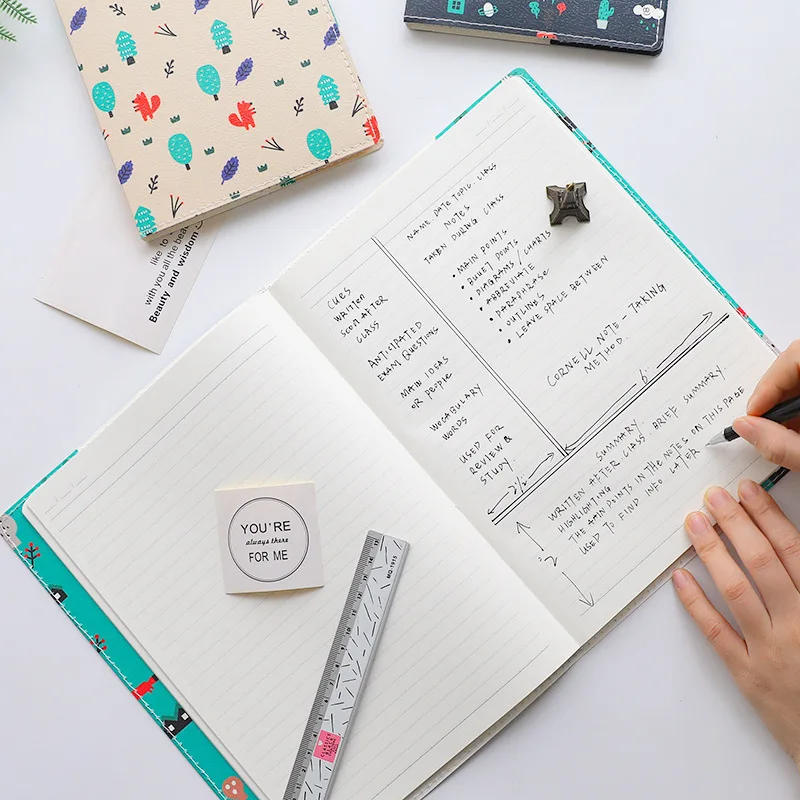 like to
with you all the bea
Beauty and wisdom
NAME DATE TOPIC CLASS
NOTES
TAKEN DURING CLASS
• MAIN POINTS
• BULLET POINTS
• DIAGRAMS / CHARTS
• ABBREVIATE
• PARAPHRASE
• OUTLINES
• LEAVE SPACE BETWEEN
CORNELL NOTE-TAKING
METHOD.
6"
CUES
WRITTEN
SOON AFTER
CLASS
ANTICIPATED
EXAM QUESTIONS
MAIN IDEAS
OR PEOPLE
VOCABULARY
WORDS
USED FOR
REVIEW &
STUDY.
SUMMARY.
WRITTEN AFTER CLASS. BRIEF SUMMARY.
HIGHLIGHTING
THE MAIN POINTS IN THE NOTES ON THIS PAGE
USED TO FIND INFO LATER
2"
YOU'RE
always there
FOR ME
MQ-1915